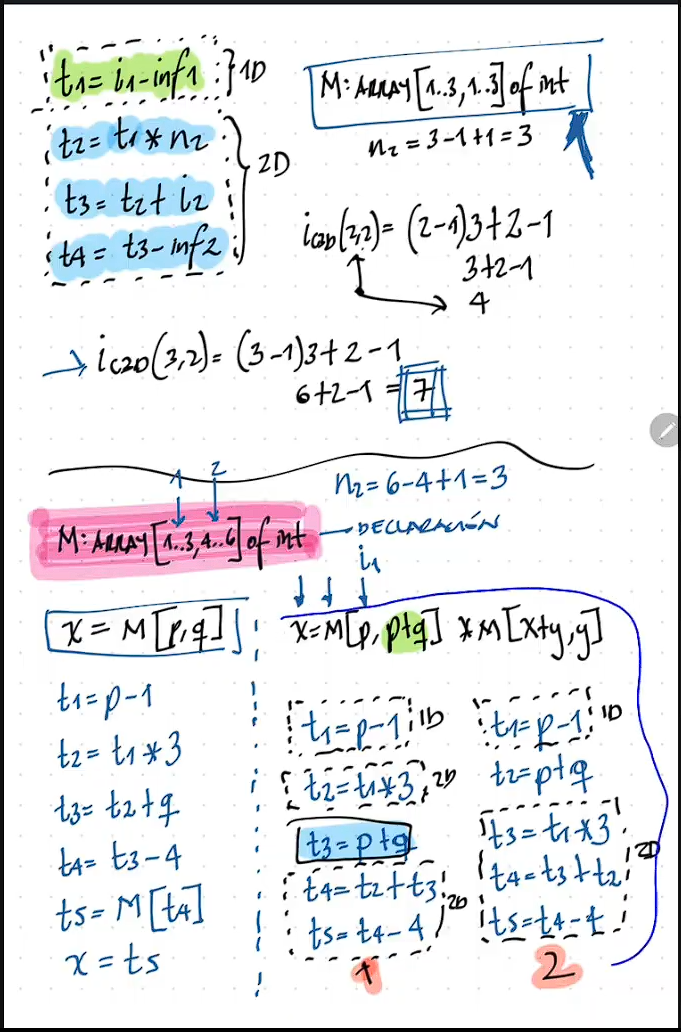 t1 = i1 - inf1 } 1D
t2 = t1 * n2
t3 = t2 + i2
t4 = t3 - inf2
2D
M: ARRAY [1..3, 1..3] of int
n2 = 3-1+1 = 3
ic2D(2,2) = (2-1)3+2-1
3+2-1
4
ic2D(3,2) = (3-1)3+2-1
6+2-1 = 7
1 2
n2 = 6-4+1 = 3
M: ARRAY [1..3, 4..6] of int
DECLARACIÓN
i1
x = M[p,q]
t1 = p-1
t2 = t1*3
t3 = t2+q
t4 = t3-4
t5 = M[t4]
x = t5
x = M[p, p+q] * M[x+y, y]
t1 = p-1 1D
t2 = t1*3 2D
t3 = p+q
t4 = t2+t3
t5 = t4-4
2D
1
t1 = p-1 1D
t2 = p+q
t3 = t1*3
t4 = t3+t2
t5 = t4-4
2D
2